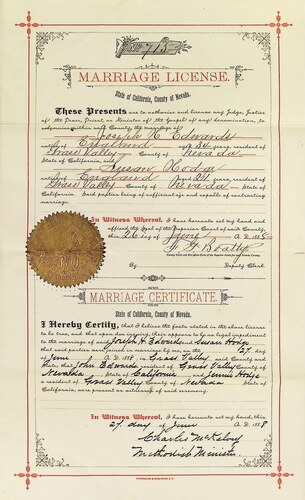 No 713
MARRIAGE LICENSE.
State of California, County of Nevada.
These Presents are to authorize and license any Judge, Justice
of the Peace, Priest, or Minister of the Gospel of any denomination, to
solemnize within said County, the marriage of
Joseph H. Edwards
native of England aged 34 years, resident of
Grass Valley County of Nevada
State of California, and
Susan
native of England aged 24 years, resident of
Grass Valley County of Nevada State of
California. Said parties being of sufficient age and capable of contracting
marriage.
In Witness Whereof, I have hereunto set my hand and
affixed the Seal of the Superior Court of said County,
this 26 day of June A. D. 188
County Clerk and Ex-officio Clerk of the Superior Court for said Nevada County.
By Deputy Clerk.
MARRIAGE CERTIFICATE.
State of California, County of Nevada.
I Hereby Certify, that I believe the facts stated in the above license
to be true, and that upon due inquiry, there appears to be no legal impediment
to the marriage of said Joseph H. Edwards and Susan
that said parties were joined in marriage by me, on the 27 day
of June 188 in Grass Valley said County and
State; that John Edwards a resident of Grass Valley County of
Nevada State of California and
a resident of Grass Valley County of Nevada State of
California, were present as witnesses of said ceremony.
In Witness Whereof, I have hereunto set my hand, this
27 day of June A. D. 188
Charles
Methodist Minister